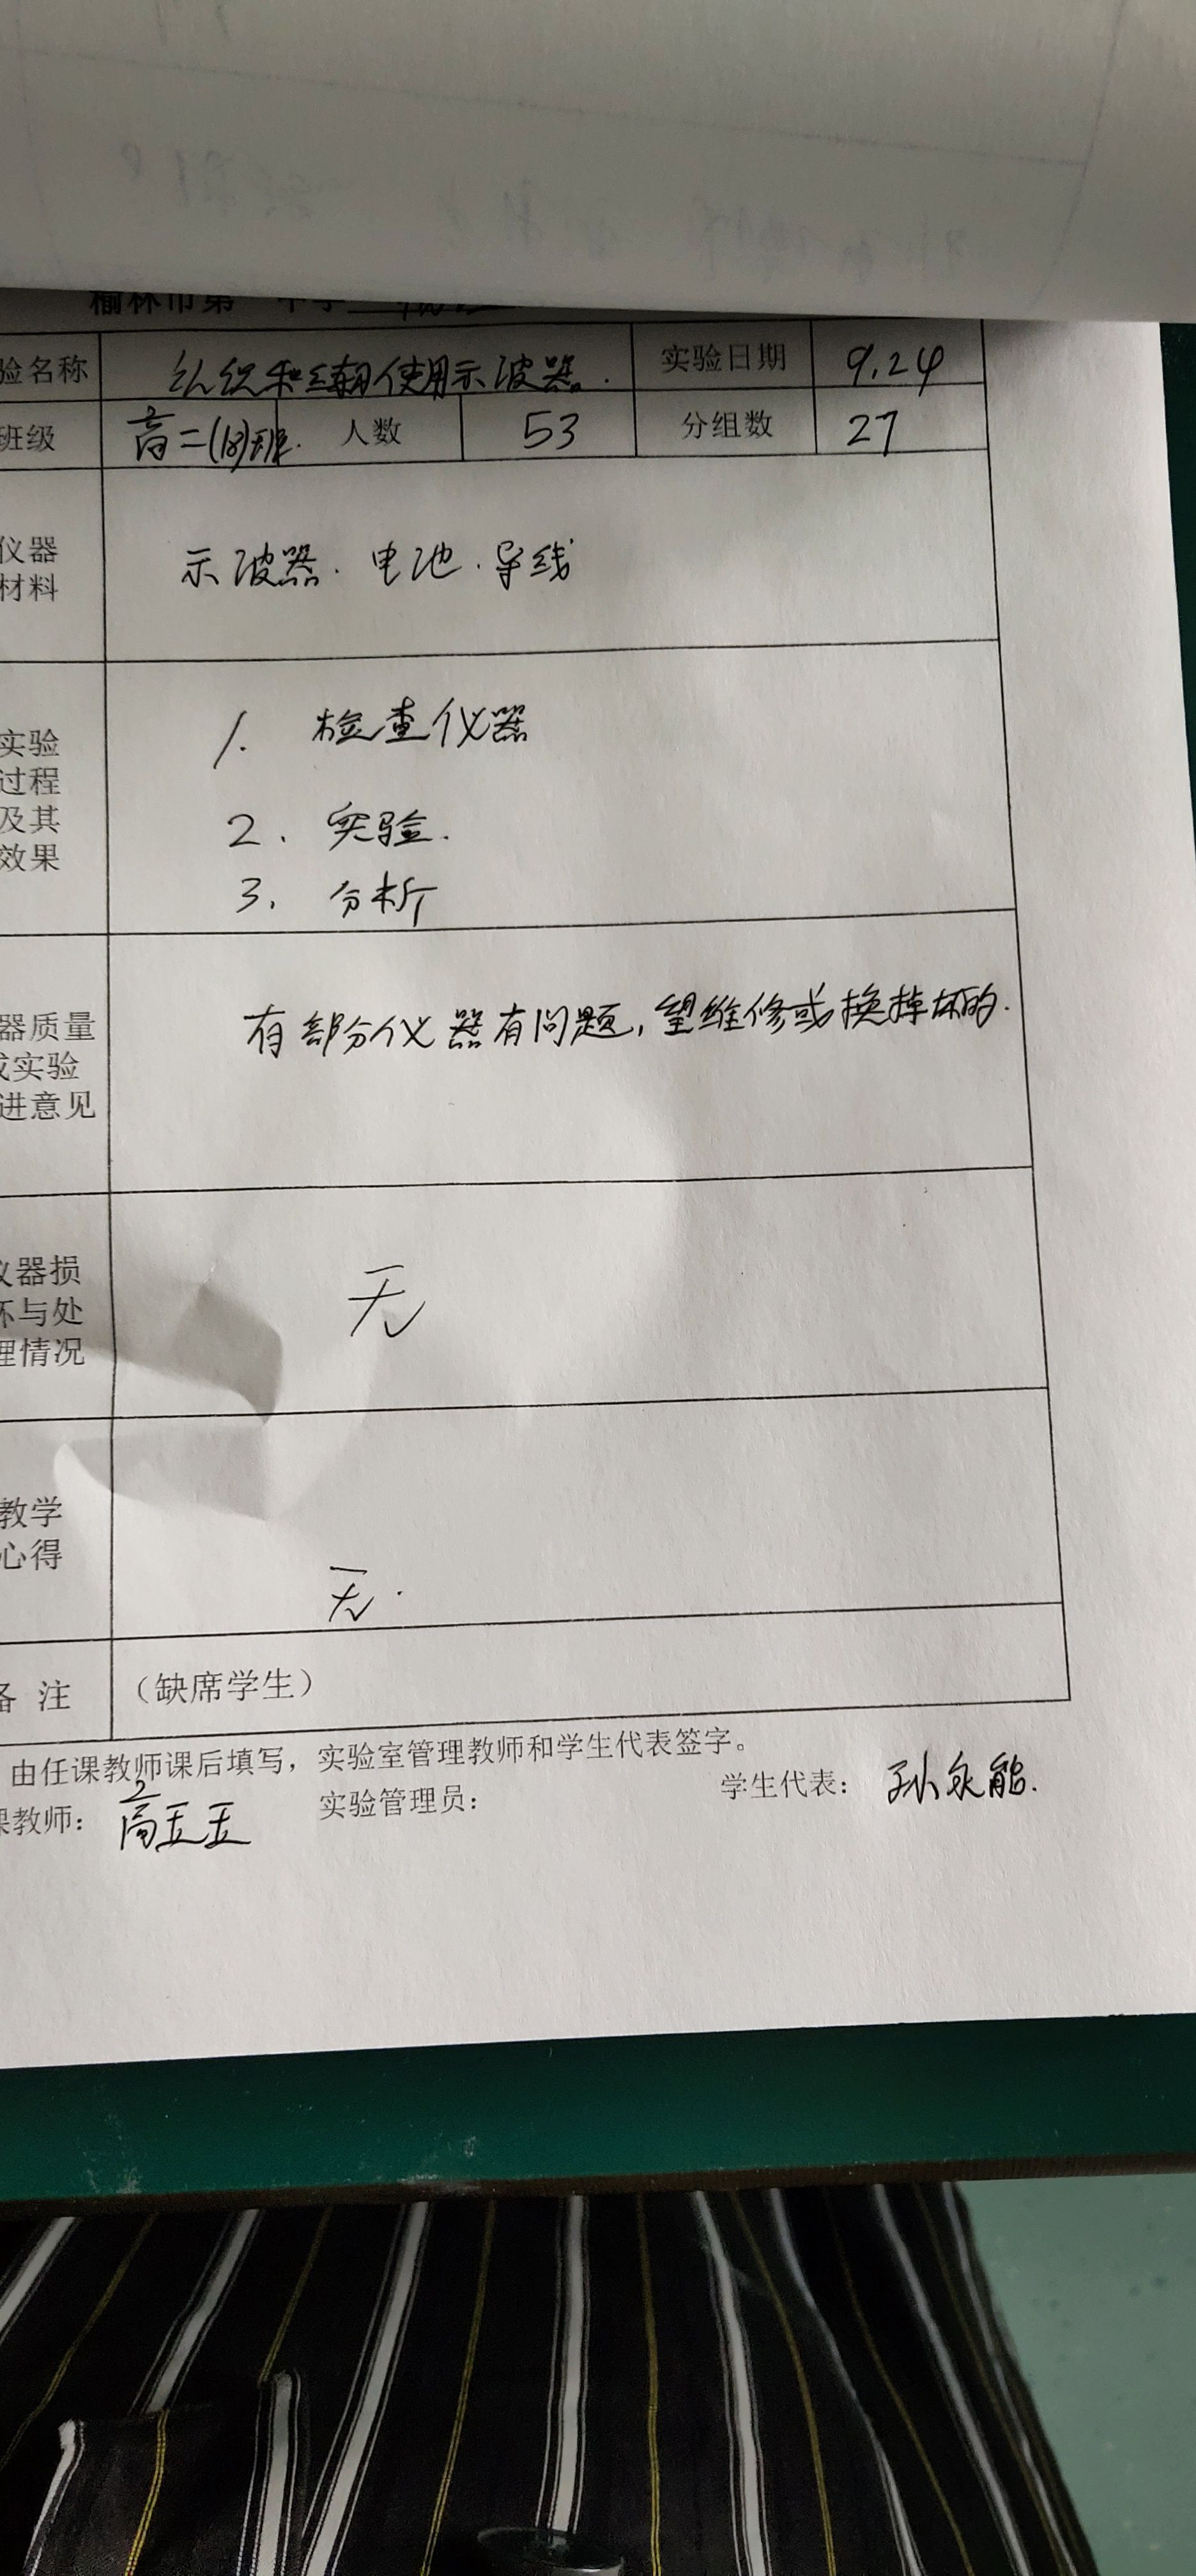 榆林市第一中学
验名称 组织和练习使用示波器. 实验日期 9.24
班级 高二(18)班. 人数 53 分组数 27
仪器
材料
示波器. 电池. 导线
实验
过程
及其
效果
1. 检查仪器
2. 实验.
3. 分析
器质量
或实验
进意见
有部分仪器有问题,望维修或换掉坏的.
仪器损
坏与处
理情况
无
教学
心得
无.
备 注 (缺席学生)
由任课教师课后填写,实验室管理教师和学生代表签字。
课教师: 高玉玉 实验管理员: 学生代表: 孙永能.